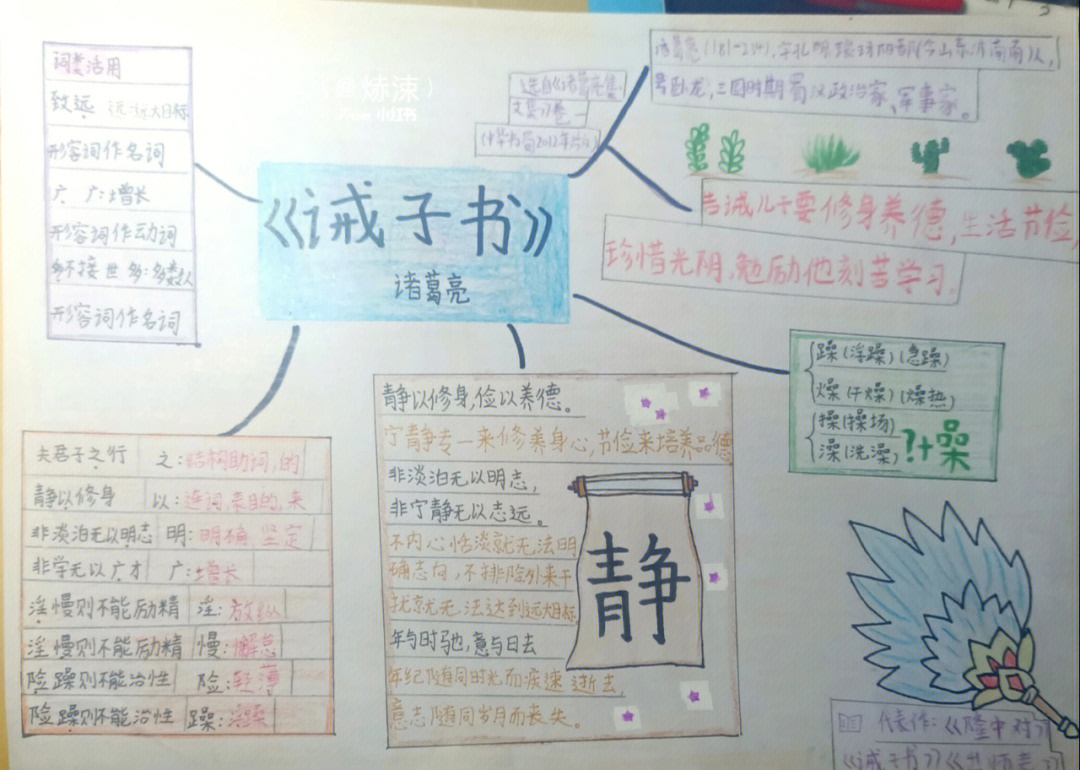 词类活用
致远 远:远大目标
形容词作名词
广 广:增长
形容词作动词
多不接世 多:多数人
形容词作名词
选自《诸葛亮集·
文集》卷一
(中华书局2012年版)
《诫子书》
诸葛亮
诸葛亮(181-234),字孔明,琅琊阳都(今山东沂南南)人,
号卧龙,三国时期蜀汉政治家、军事家。
告诫儿子要修身养德,生活节俭,
珍惜光阴,勉励他刻苦学习。
躁(浮躁)(急躁)
燥(干燥)(燥热)
操(操场)
澡(洗澡)
?+喿
夫君子之行 之:结构助词,的
静以修身 以:连词表目的,来
非淡泊无以明志 明:明确 坚定
非学无以广才 广:增长
淫慢则不能励精 淫:放纵
淫慢则不能励精 慢:懈怠
险躁则不能治性 险:轻薄
险躁则不能治性 躁:浮躁
静以修身,俭以养德。
宁静专一来修养身心,节俭来培养品德
非淡泊无以明志,
非宁静无以志远。
不内心恬淡就无法明
确志向,不排除外来干
扰就无法达到远大目标
年与时驰,意与日去
年纪随同时光而疾速逝去,
意志随同岁月而丧失。
静
代表作:《隆中对》
《诫子书》《出师表》